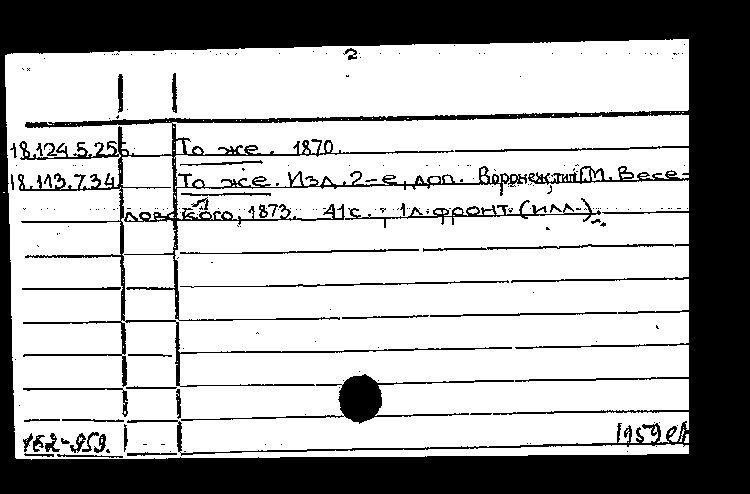 2
18.124.5.256. То же. 1870.
18.113.7.34 То же. Изд. 2-е, доп. Воронеж, тип. Г.М. Весе-
ловского, 1873. 41 с.; 1 л. фронт. (илл.).
162-959. 1959